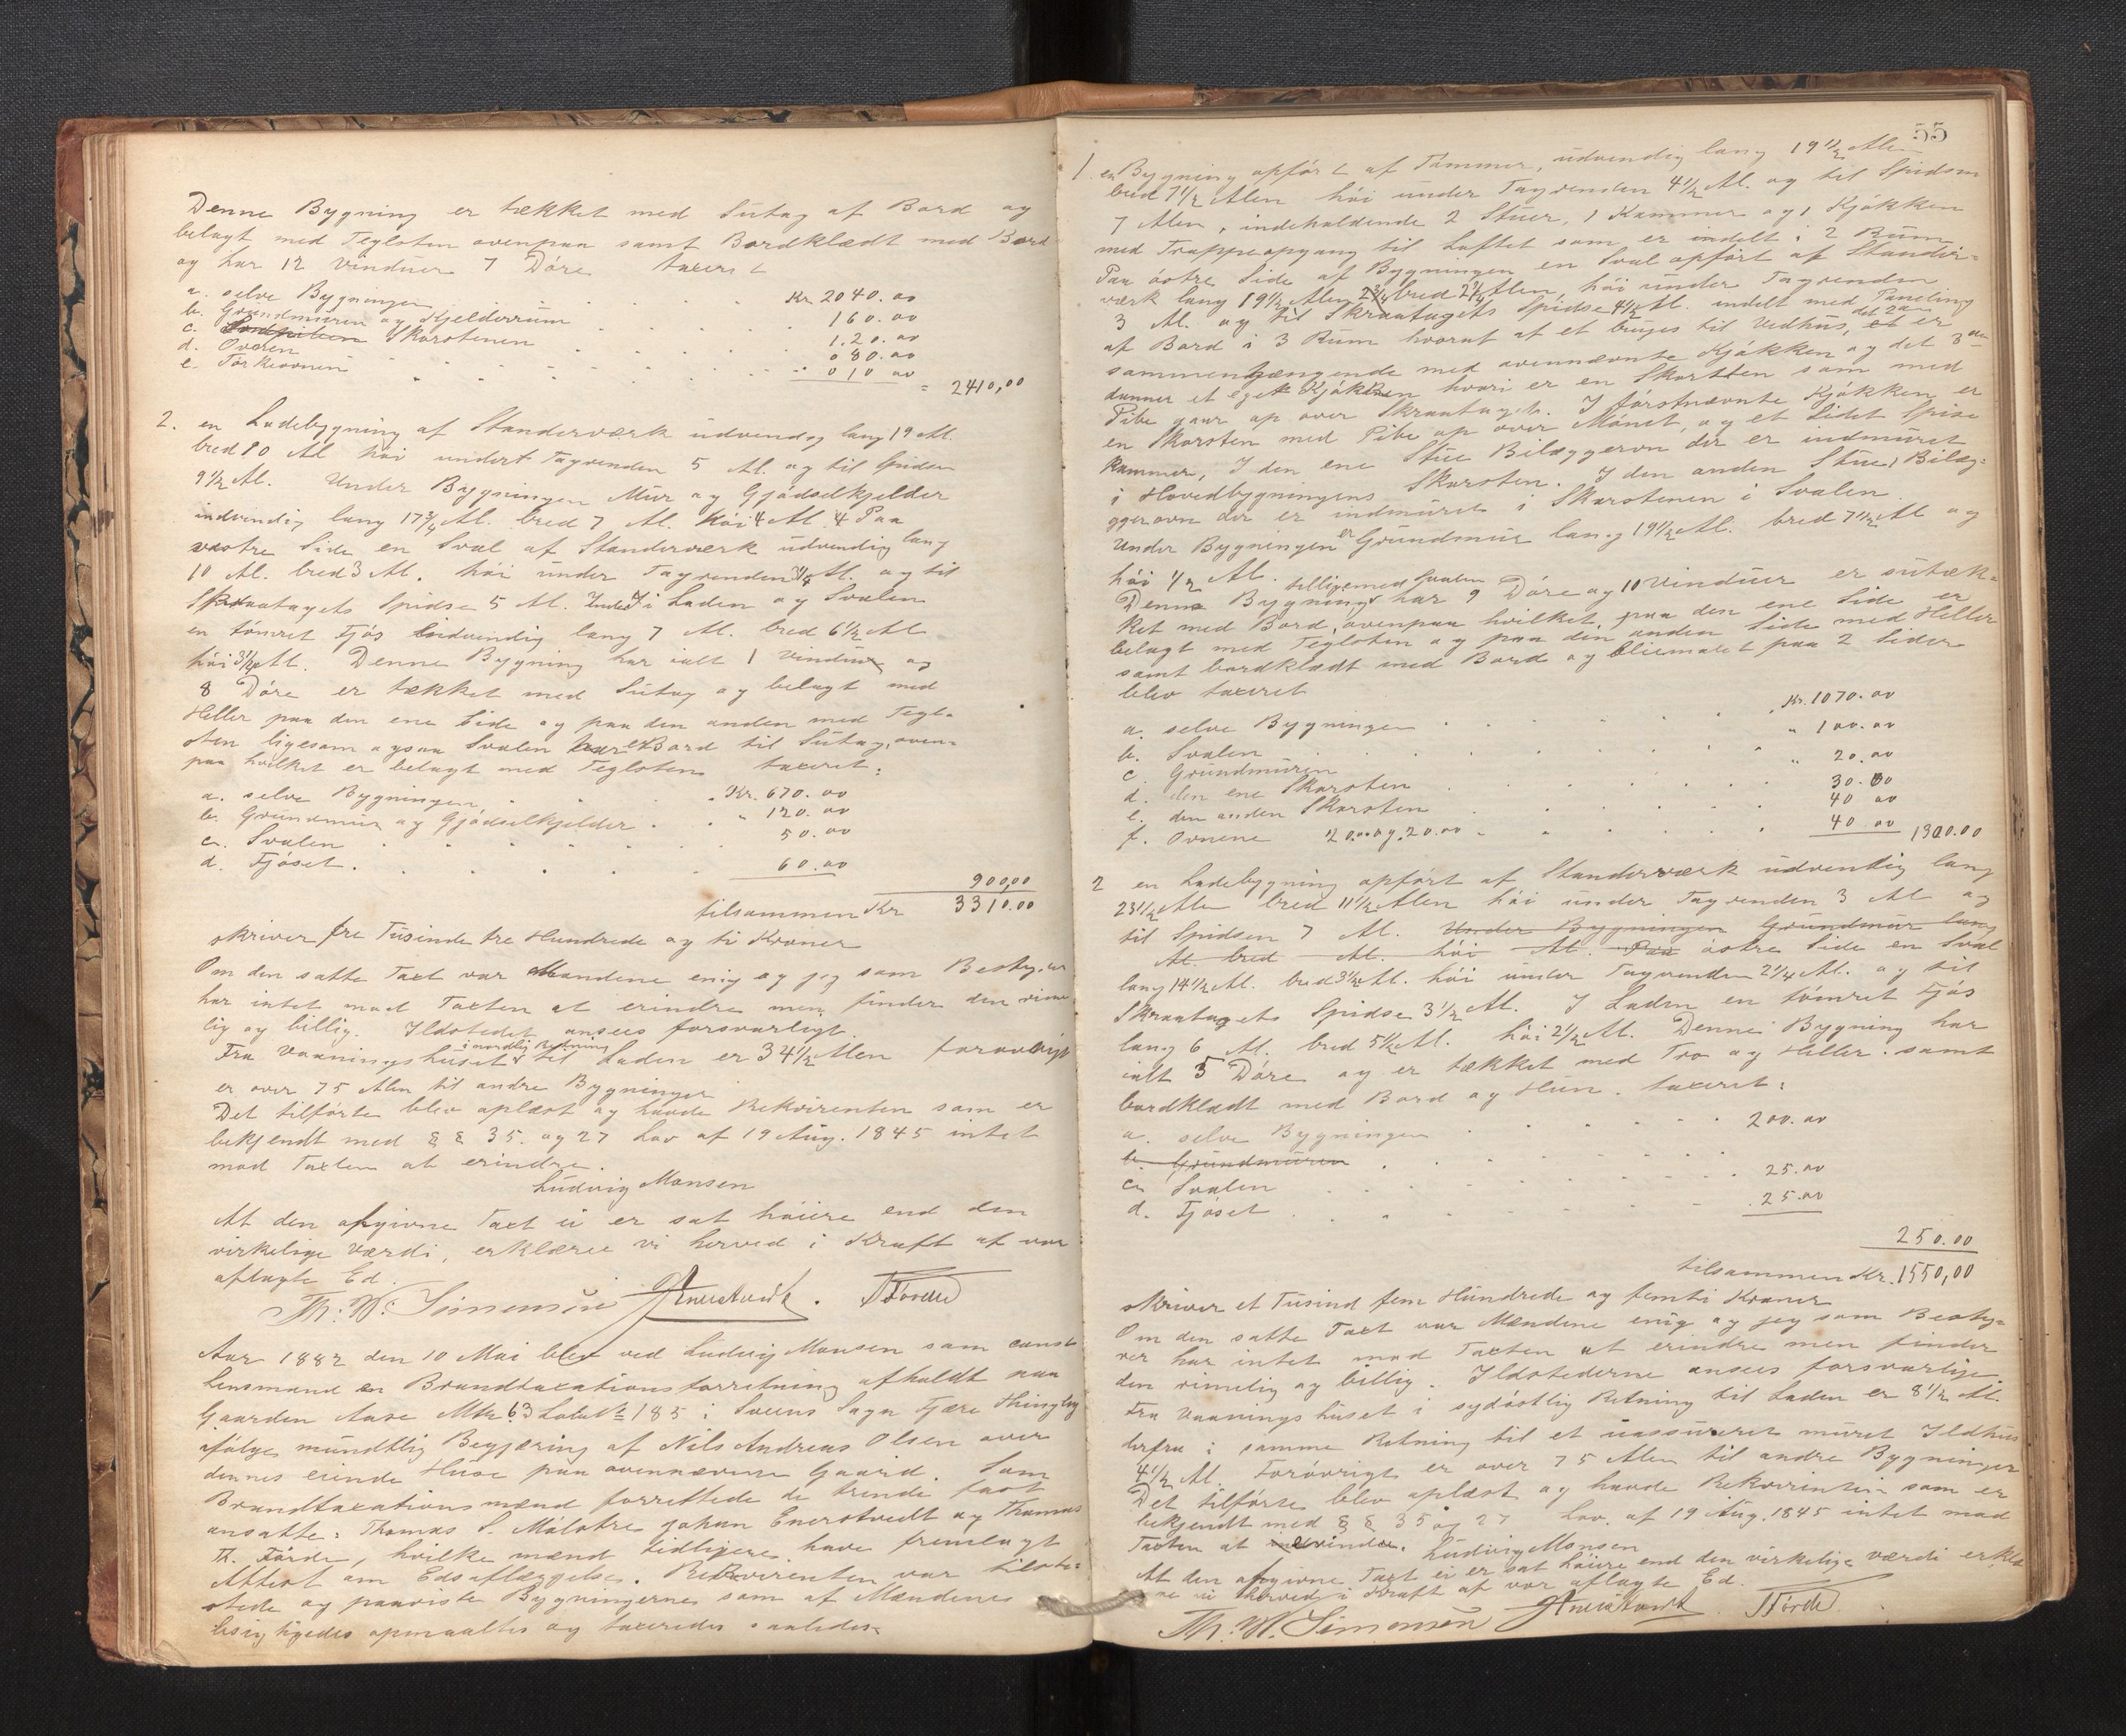 Denne Bygning er tækket med Sutag af Bord og
belagt med Teglsten ovenpaa samt Bordklædt med Bord
og har 12 Vinduer 7 Döre taxeret
a. selve Bygningen Kr. 2040.00
b. Grundmuren og Kjelderrum 160.00
c. Skorstenen 120.00
d. Ovnen 080.00
e. Törkeovnen 010 00
= 2410,00
2. en Ladebygning af Standerværk udvendig lang 19 Al.
bred 10 Al höi under Tagrenden 5 Al. og til Spidsen
9 1/2 Al. Under Bygningen Mur og Gjödselkjelder
indvendig lang 17 3/4 Al. bred 7 Al. höi 4 Al. Paa
vestre Side en Sval af Standerværk udvendig lang
10 Al. bred 3 Al. höi under Tagrenden Al. og til
Skraatagets Spidse 5 Al. Inde i Laden og Svalen
en tömret Fjös indvendig lang 7 Al. bred 6 1/2 Al
höi 3 1/2 Al. Denne Bygning har ialt 1 Vindue og
8 Döre er tækket med Sutag og belagt med
Heller paa den ene Side og paa den anden med Tegl-
sten ligesom ogsaa Svalen har Bord til Sutag, oven-
paa hvilket er belagt med Teglsten taxeret:
a. selve Bygningen Kr. 670.00
b. Grundmur og Gjödselkjelder " 120.00
c. Svalen 50.00
d. Fjöset. 60.00
900,00
tilsammen Kr 3310.00
skriver tre Tusinde tre Hundrede og ti Kroner
Om den satte Taxt var Mændene enig og jeg som Bestyrer
har intet mod Taxten at erindre men finder den rime
lig og billig. Ildstedet ansees forsvarligt.
i nordlig Retning
Fra Vaaningshuset til Laden er 34 1/2 Alen forövrigt
er over 75 Alen til andre Bygninger
Det tilförte blev oplæst og havde Rekvirenten som er
bekjendt med § § 35. og 27 Lov af 19 Aug. 1845 intet
mod Taxten at erindre.
Ludvig Monsen
At den afgivne Taxt ei er sat höiere end den
virkelige Værdi, erklære vi herved i Kraft af vor
aflagte Ed.
Th. W. Simonsen JEnerstvedt. TFörde
Aar 1882 den 10 Mai blev ved Ludvig Monsen som const
Lensmand en Brandtaxationsforretning afholdt paa
Gaarden Aase Mtr 63 Lobe № 185 i Sveens Sogn Fjære Thinglag
ifölge mundtlig Begjæring af Nils Andreas Olsen over
dennes eiende Huse paa ovennævnte Gaard. Som
Brandtaxationsmænd forrettede de trende fast
ansatte: Thomas S. Mölstre Johan Enerstvedt og Thomas
Th. Förde, hvilke mænd tidligere have fremlagt
Attest om Edsaflæggelse. Rekvirenten var tilste-
stede og paaviste Bygningerne som af Mændene
besigtigedes opmaaltes og taxeredes saaledes:
55
1. en Bygning opfört af Tømmer, udvendig lang 19 1/2 Alen
bred 7 1/2 Alen höi under Tagrenden 4 1/2 Al. og til Spidsen
7 Alen, indeholdende 2 Stuer, 1 Kammer og 1 Kjökken
med Trappeopgang til Loftet som er indelt i 2 Rum
Paa östre Side af Bygningen en Sval opfört af Stander-
værk lang 19 1/2 Alen bred 2 1/4 Alen, höi under Tagrenden
3 Al. og til Skraatagets Spidse 4 1/2 Al. indelt med Paneling
af Bord i 3 Rum hvoraf et bruges til Vedhus, det 2det er
sammenhængende med ovennævnte Kjökken og det 3die
danner et eget Kjökken hvori er en Skorsten som med
Pibe gaar op over Skraataget. I förstnævnte Kjökken er
en Skorsten med Pibe op over Mönet, og et lidet Spise
kammer, I den ene Stue Bilæggerovn der er indmuret
i Hovedbygningens Skorsten. I den anden Stue 1 Bilæg-
ggerovn der er indmuret i Skorstenen i Svalen.
Under Bygningen er Grundmur lang 19 1/2 Al. bred 7 1/2 Al og
höi 1/2 Al.
tilligemed Svalen
Denne Bygning har 9 Döre og 10 Vinduer er sutæk-
ket med Bord, ovenpaa hvilket, paa den ene Side er
belagt med Teglsten og paa den anden Side med Heller
samt bordklædt med Bord og oliemalet paa 2 Sider
blev taxeret
a. selve Bygningen Kr. 1070.00
b. Svalen " 100.00
c. Grundmuren " 20.00
d. den ene Skorsten 30.00
e. den anden Skorsten 40 00
f. Ovnene 20.00 og 20.00 40 00 1300.00
2 en Ladebygning opfört af Standerværk udvendig lang
23 1/2 Alen bred 11 1/2 Alen höi under Tagrenden 3 Al og
til Spidsen 7 Al. Under Bygningen Grundmur lang
Al. bred Al. höi Al. Paa östre Side en Sval
lang 14 1/2 Al. bred 3 1/2 Al. höi under Tagrenden 2 1/4 Al. og til
Skraatagets Spidse 3 1/2 Al. I Laden en tömret Fjös
lang 6 Al. bred 5 1/2 Al. höi 2 1/2 Al. Denne Bygning har
ialt 5 Döre og er tækket med Tro og Heller. samt
bordklædt med Bord og Hun. taxeret:
a. selve Bygningen 200.00
b. Grundmuren
c. Svalen 25.00
d. Fjöset 25.00
250.00
tilsammen Kr. 1550,00
skriver et Tusind fem Hundrede og femti Kroner
Om den satte Taxt var Mændene enig og jeg som Besty-
rer har intet mod Taxten at erindre men finder
den rimelig og billig. Ildstederne ansees forsvarlige.
Fra Vaaningshuset i sydöstlig Retning til Laden er 8 1/2 Al.
derfra i samme Retning til et uassureret muret Ildhus
4 1/2 Al. Forövrigt er over 75 Alen til andre Bygninger
Det tilförte blev oplæst og havde Rekvirenten som er
bekjendt med § § 35 og 27 Lov. af 19 Aug. 1845 intet mod
Taxten at erindre. Ludvig Monsen
At den afgivne Taxt ei er sat höiere end den virkelige værdi erklæ
re vi herved i Kraft af vor aflagte Ed.
Th. W. Simonsen JEnerstvedt TFörde.